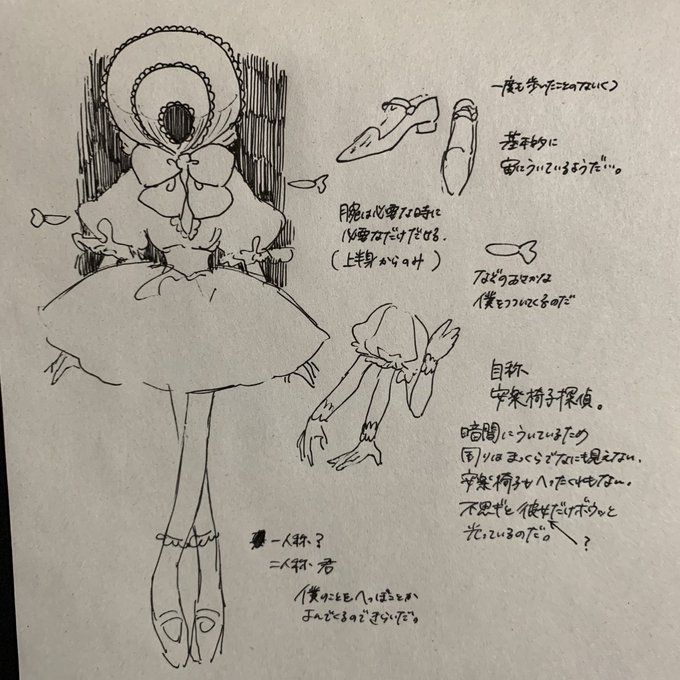 一度も歩いたことのないくつ
基本的に
宙にういているようだい。
腕は必要な時に
必要なだけだせる.
(上半身からのみ)
なぞのおさかな
僕をつついてくるのだ
自称、
安楽椅子探偵。
暗闇にういているため
周りはまっくらでなにも見えない.
安楽椅子もへったくれもない.
不思ギと彼女だけボウッと
光っているのだ。
?
一人称、?
二人称、君
僕のことをへっぽことか
よんでくるのできらいだ。